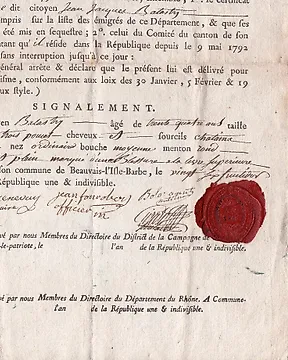 le certificat
dit citoyen Jean Jacques Balastry
mpris sur la liste des émigrés de ce Département, & que ses
été mis en sequestre; 2°. celui du Comité du canton de son
tant qu'il réside dans la République depuis le 9 mai 1792
sans interruption jusqu'à ce jour:
général arrête & déclare que le présent lui est délivré pour
isme, conformément aux loix des 30 Janvier, 5 Février & 19
ux style. )
SIGNALEMENT.
en Balastry âgé de trente quatre ans taille
trois pouces cheveux et sourcils chatains
nez ordinaire bouche moyenne menton rond
plein marqué d'une
son commune de Beauvais-l'Isle-Barbe, le vingt
République une & indivisible.
officier m
vé par nous Membres du Directoire du District de la Campagne de
le-patriote, le l'an de la République une & indivisible.
vé par nous Membres du Directoire du Département du Rhône. A Commune-
l'an de la République une & indivisible.